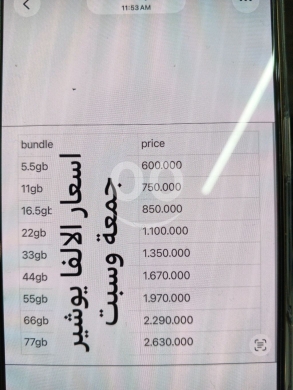 11:53 AM
bundle price
5.5gb 600.000
11gb 750.000
16.5gb 850.000
22gb 1.100.000
33gb 1.350.000
44gb 1.670.000
55gb 1.970.000
66gb 2.290.000
77gb 2.630.000
اسعار الالفا يوشير
جمعة وسبت